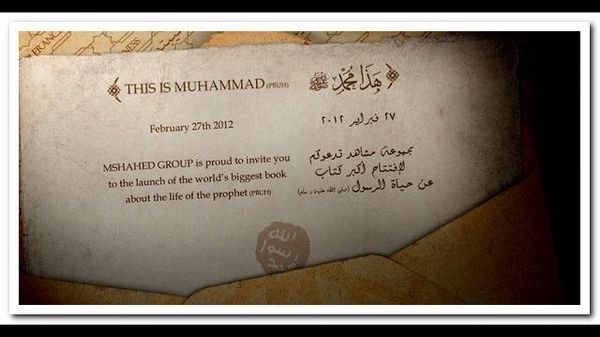 THIS IS MUHAMMAD (PBUH)
February 27th 2012
MSHAHED GROUP is proud to invite you
to the launch of the world's biggest book
about the life of the prophet (PBUH)
هَذَا مُحَمَّدٌ ﷺ
٢٧ فبراير ٢٠١٢
مجموعة مشاهد تدعوكم
لإفتتاح أكبر كتاب
عن حياة الرسول (صلى الله عليه و سلم)
الله
رسول